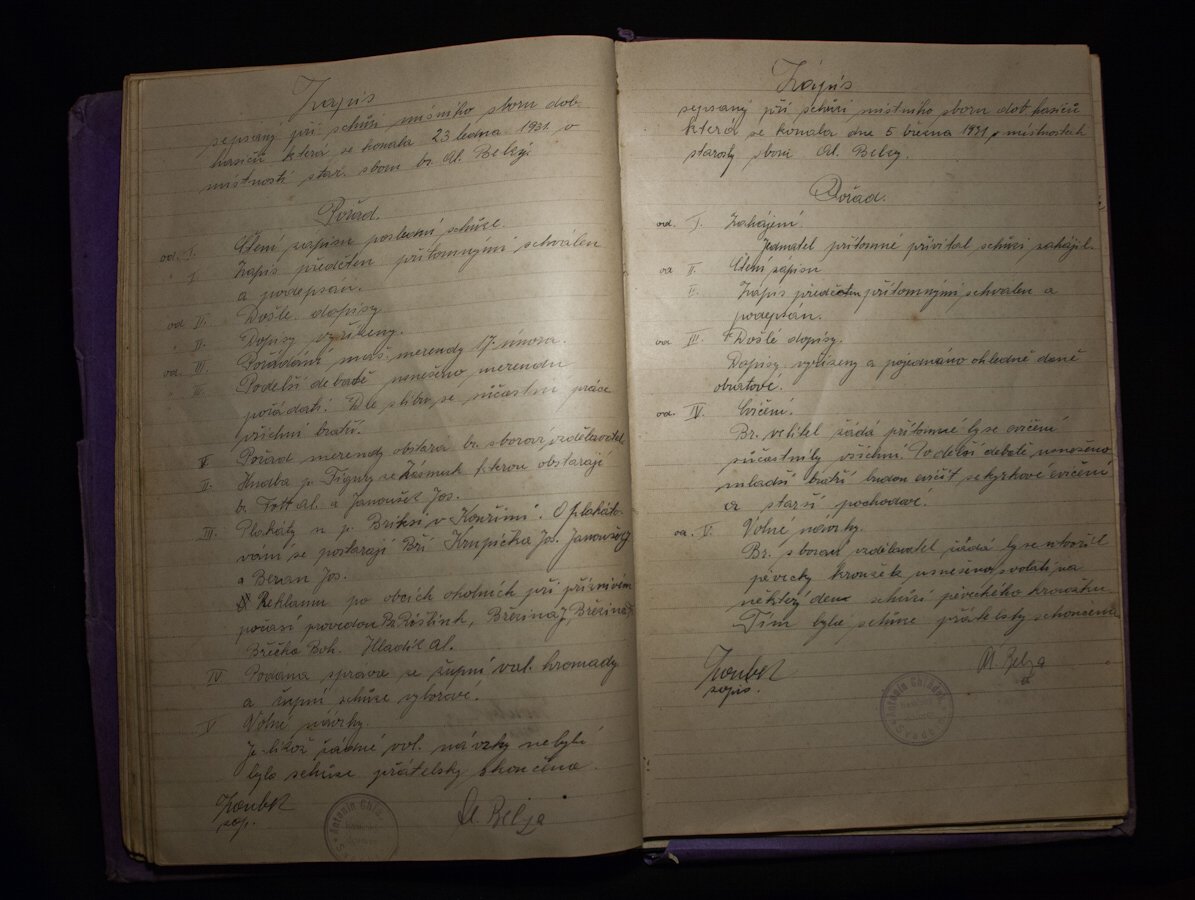 Zápis
sepsaný při schůzi místního sboru dob.
hasičů která se konala 23 ledna 1931. v
místnosti star. sboru br. Al. Belzy.
Pořad.
od. I. Čtení zápisu poslední schůze.
" I Zápis předčten přítomnými schválen
a podepsán.
od II. Došlé dopisy.
" II. Dopisy vyřízeny.
od. III. Pořádání merendy 17. února.
" III. Podelší debatě usnešeno merendu
pořádati. Dle slibu se súčastní práce
všichni bratří.
I Pořad merendy obstará br. sborový vzdělavatel.
II. Hudba p. Figuly se Zásmuk kterou obstarají
br. Fott Al. a Janoušek Jos.
III. Plakáty u p. Briksi v Kouřimi. O plakáto-
vání se postarají Bří Krupička Jos. Janoušek J
a Beran Jos.
Reklamu po obcích okolních při příznivém
počasí provedou Br. Březina J, Březina
Boh. Hladík Al.
IV Podána zpráva se župní val. hromady
a župní schůze výborové.
V Volné návrhy.
Je-likož žádné vol. návrhy nebyly
byla schůze přátelsky skončena.
Zoubek
zap.
A. Belza
Antonín
Zápis
sepsaný při schůzi místního sboru dob. hasičů
která se konala dne 5 března 1931 v místnostech
starosty sboru Al. Belzy.
Pořad.
od. I. Zahájení
Jednatel přítomné přivítal schůzi zahájil.
od II. Čtení zápisu
Zápis předčten přítomnými schválen a
podepsán.
od III. Došlé dopisy.
Dopisy vyřízeny a pojednáno ohledně daně
obratové.
od. IV. Cvičení.
Br. velitel žádá přítomné by se cvičení
súčastnily všichni. Podelší debatě usnošeno
mladší bratří budou cvičit sekyrkové cvičení
a starší pochodové.
od. V. Volné návrhy.
Br. sborov vzdělavatel žádá by se utvořil
pěvecky kroužek usnešeno svolati na
některý den schůzi pěveckého kroužku.
Tím byla schůze přátelsky skončena
Zoubek
zapis.
A. Belza
Antonín